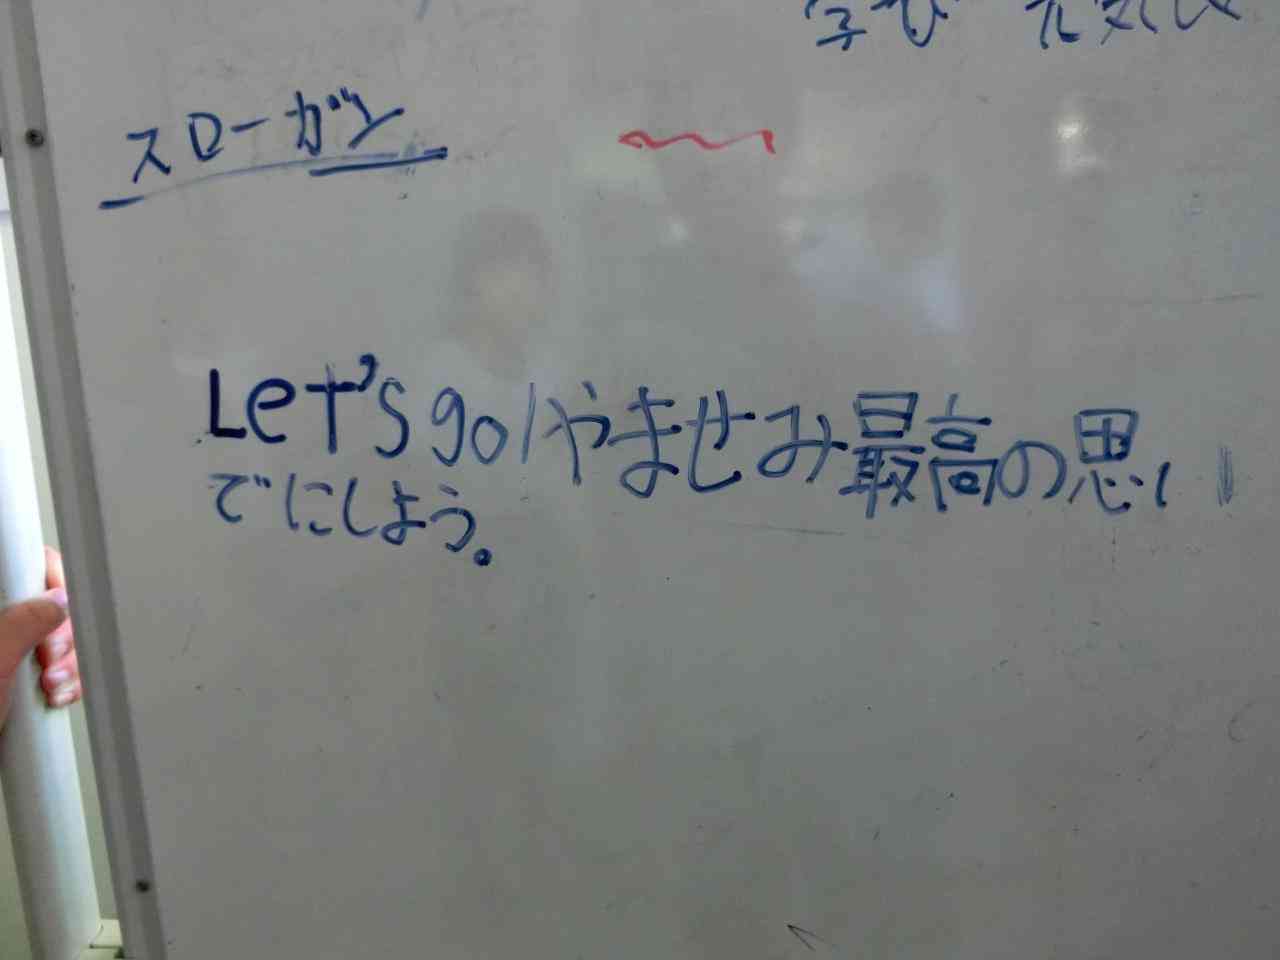 学び 元気
スローガン
Let's go!やませみ最高の思い
でにしよう。